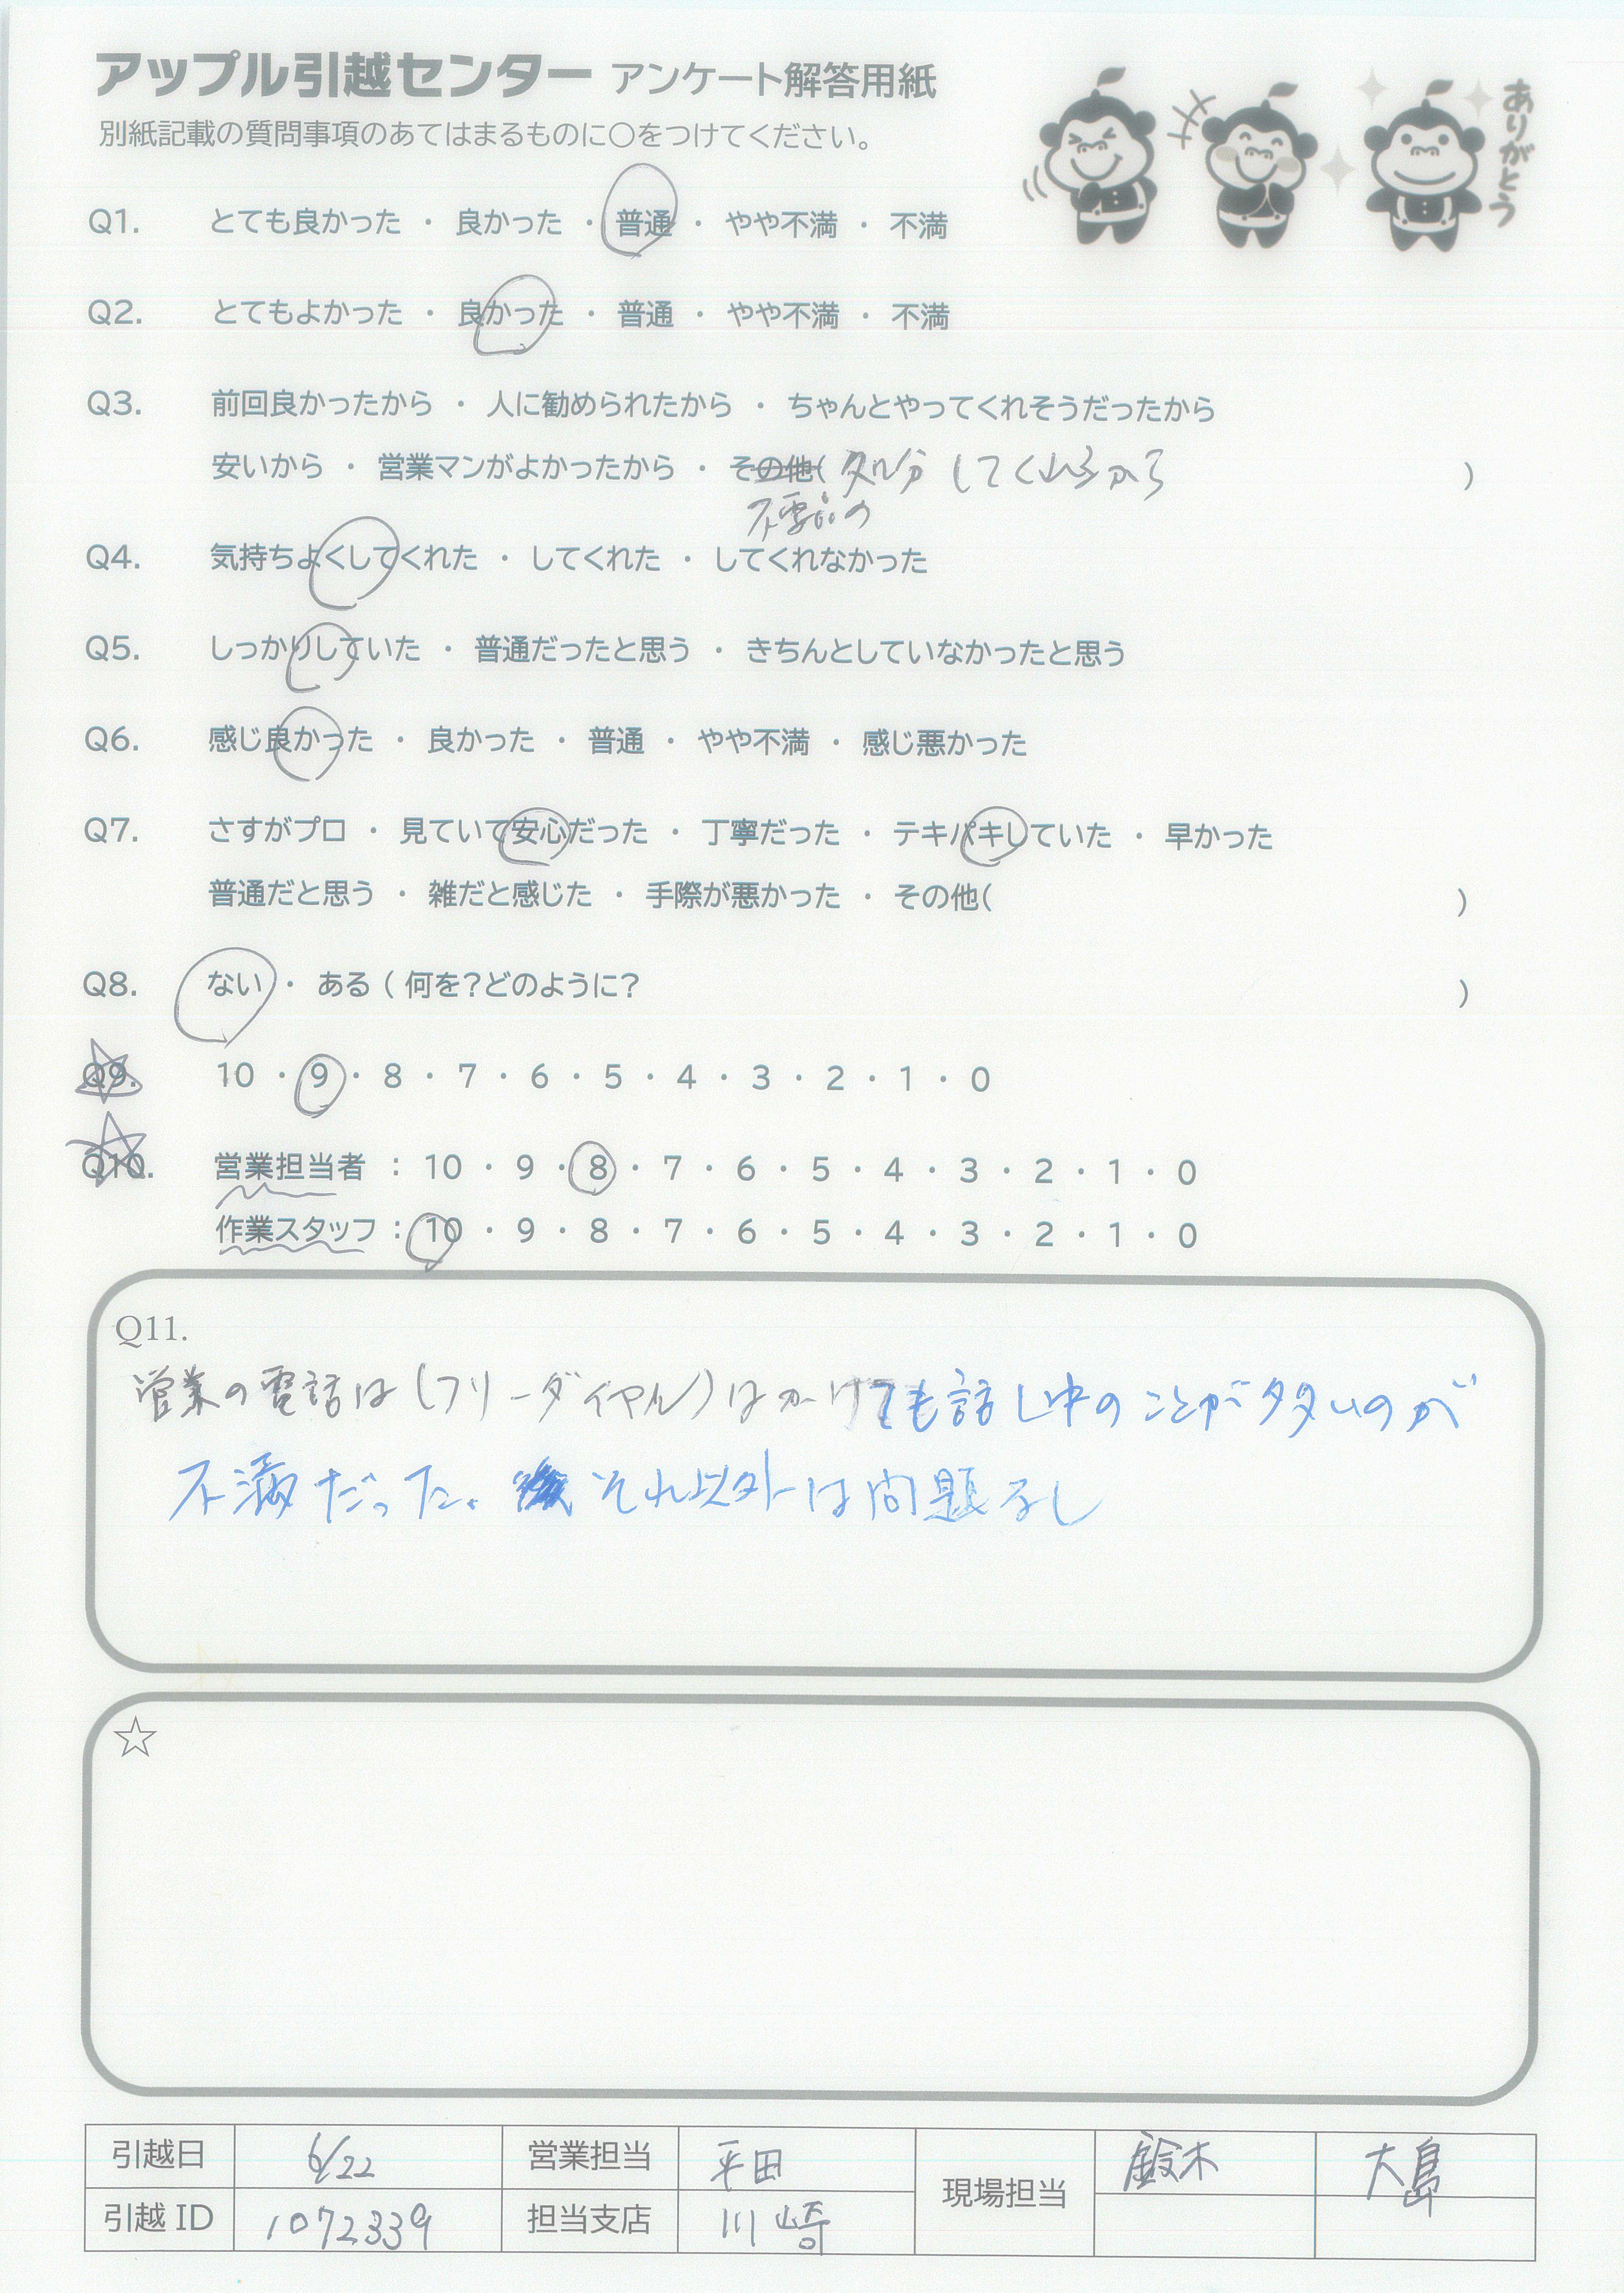 アップル引越センター アンケート解答用紙
別紙記載の質問事項のあてはまるものに○をつけてください。
ありがとう
Q1. とても良かった ・ 良かった ・ 普通 ・ やや不満 ・ 不満
Q2. とてもよかった ・ 良かった ・ 普通 ・ やや不満 ・ 不満
Q3. 前回良かったから ・ 人に勧められたから ・ ちゃんとやってくれそうだったから
安いから ・ 営業マンがよかったから ・ その他( 処分してくれるから )
不要品の
Q4. 気持ちよくしてくれた ・ してくれた ・ してくれなかった
Q5. しっかりしていた ・ 普通だったと思う ・ きちんとしていなかったと思う
Q6. 感じ良かった ・ 良かった ・ 普通 ・ やや不満 ・ 感じ悪かった
Q7. さすがプロ ・ 見ていて安心だった ・ 丁寧だった ・ テキパキしていた ・ 早かった
普通だと思う ・ 雑だと感じた ・ 手際が悪かった ・ その他( )
Q8. ない ・ ある ( 何を?どのように? )
Q9. 10 ・ 9 ・ 8 ・ 7 ・ 6 ・ 5 ・ 4 ・ 3 ・ 2 ・ 1 ・ 0
Q10. 営業担当者 : 10 ・ 9 ・ 8 ・ 7 ・ 6 ・ 5 ・ 4 ・ 3 ・ 2 ・ 1 ・ 0
作業スタッフ : 10 ・ 9 ・ 8 ・ 7 ・ 6 ・ 5 ・ 4 ・ 3 ・ 2 ・ 1 ・ 0
Q11.
営業の電話は(フリーダイヤル)はかけても話し中のことが多いのが
不満だった。それ以外は問題なし
☆
引越日 6/22 営業担当 平田 現場担当 鈴木 大島
引越 ID 1072339 担当支店 川崎